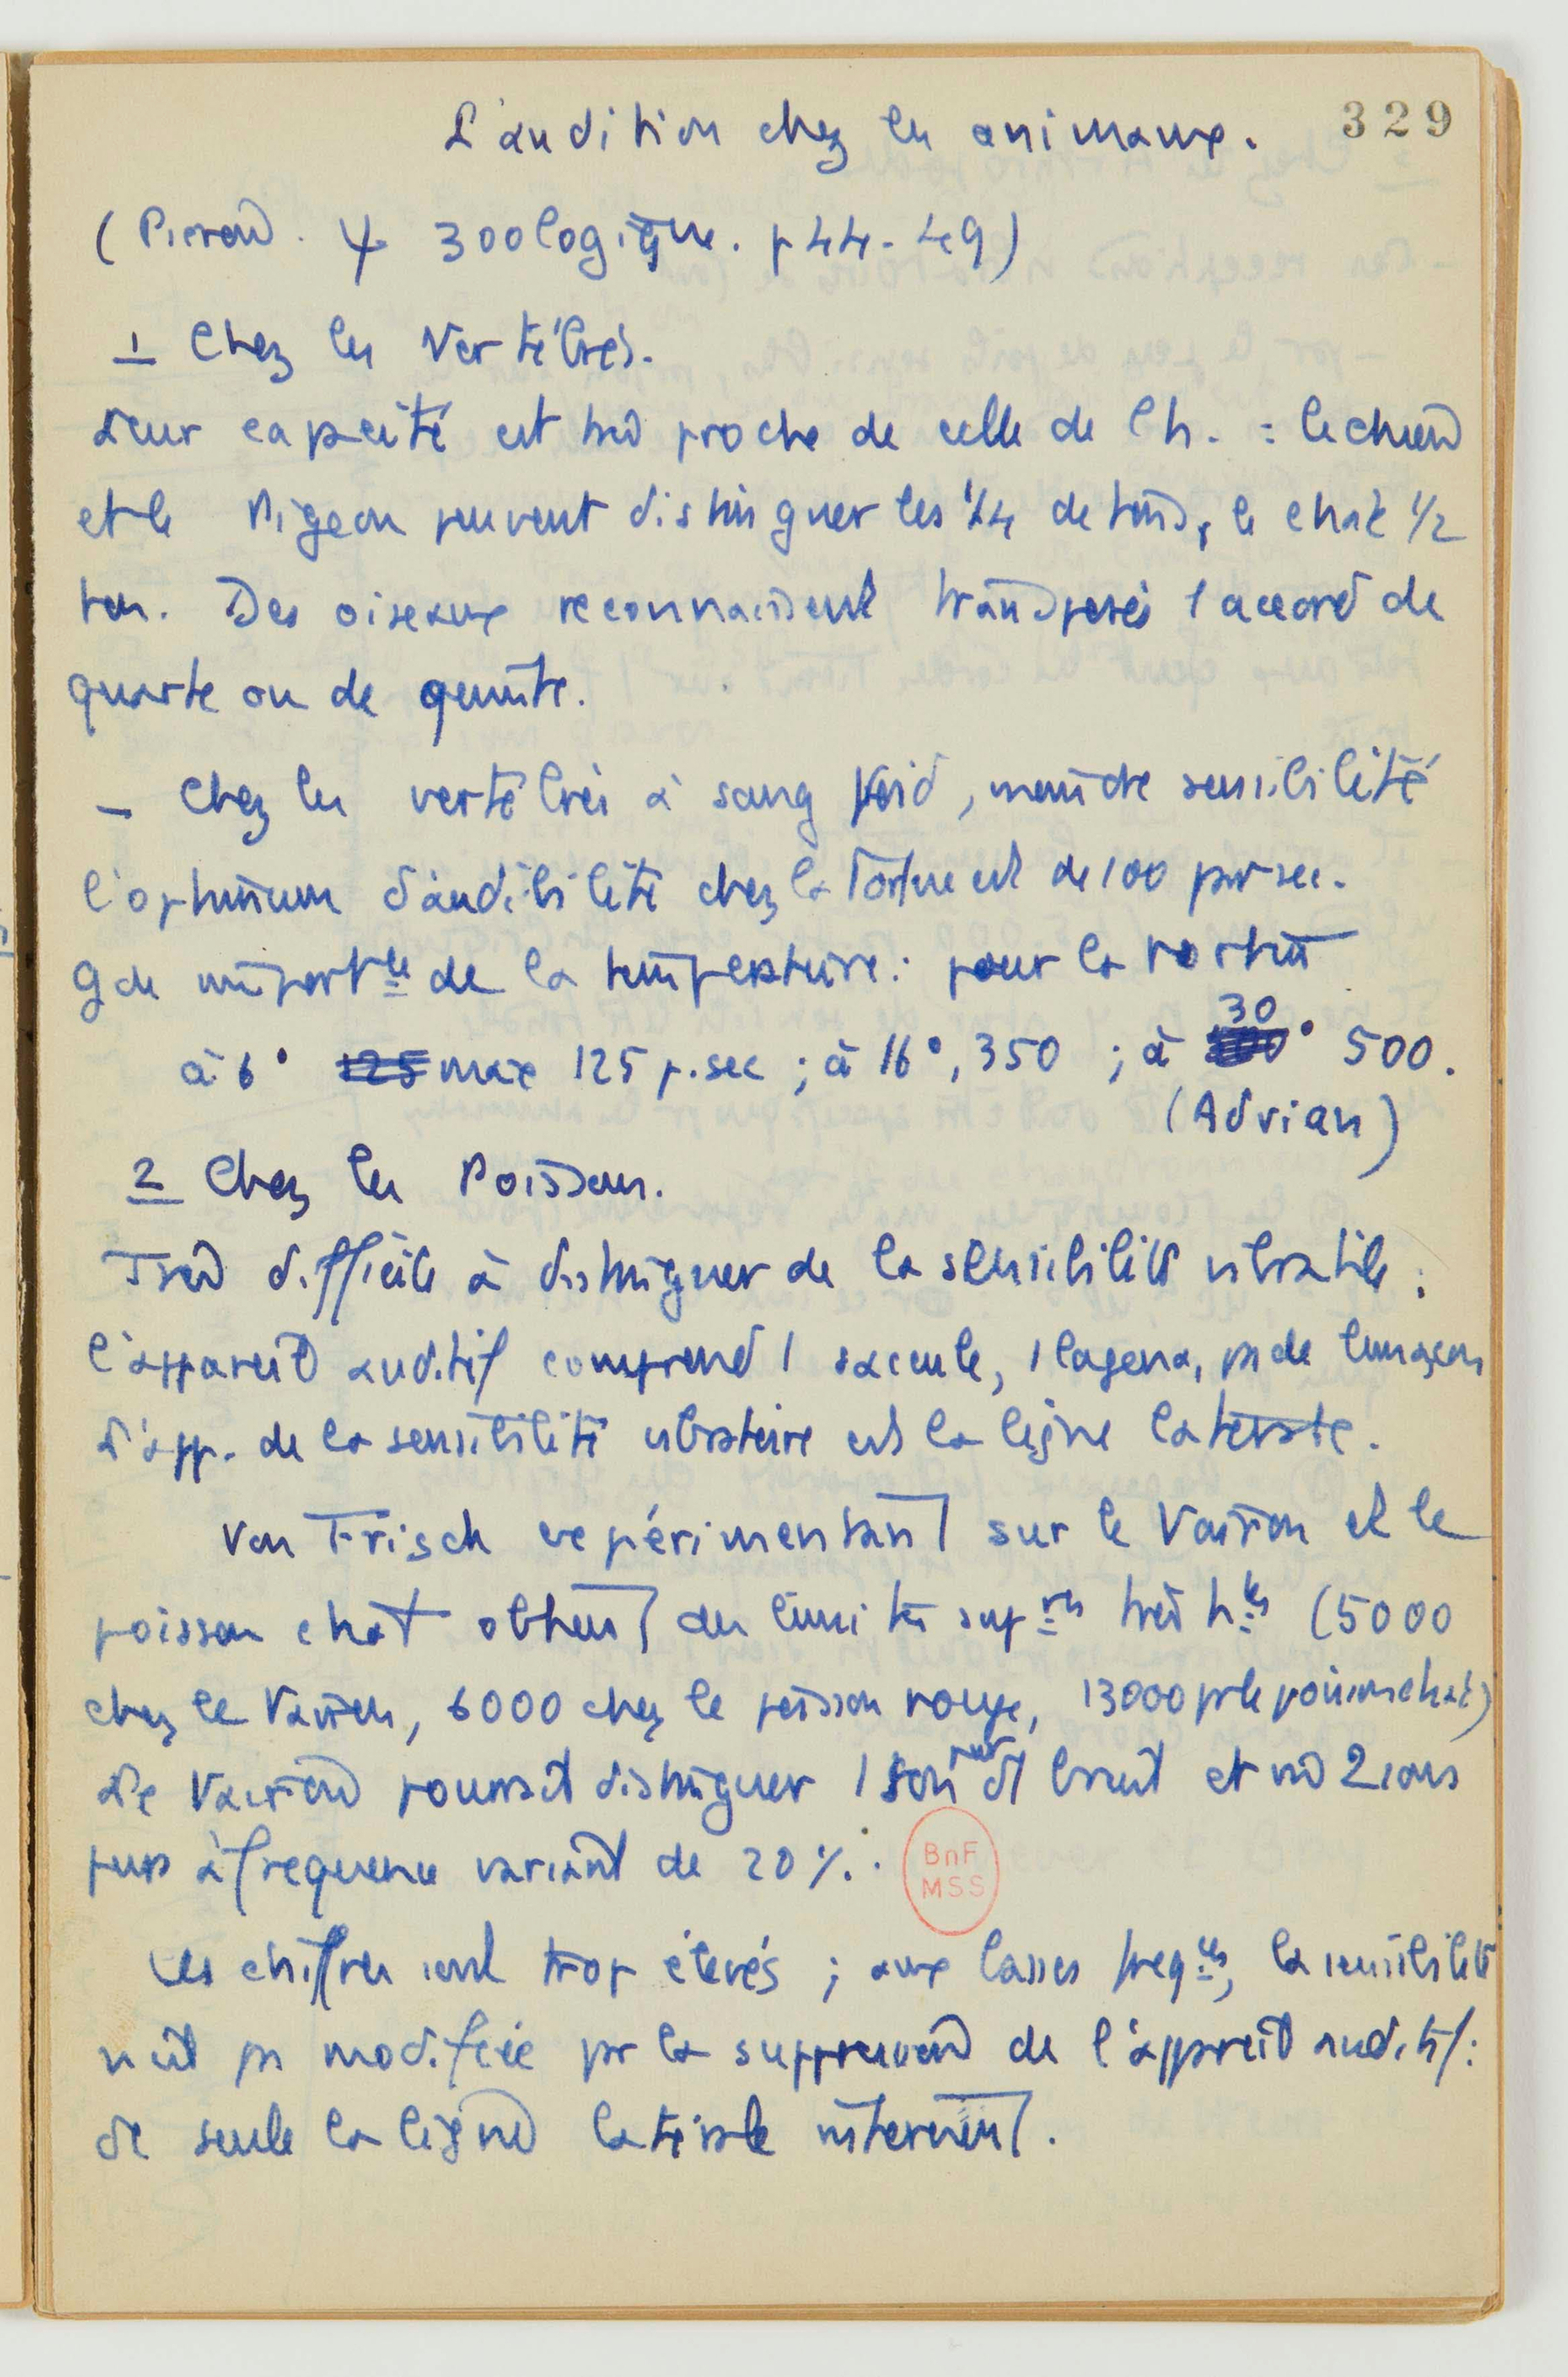 L'audition chez les animaux. 329
(Pieron. ψ zoologique. p 44-49)
1 Chez les Vertébrés.
Leur capacité est très proche de celle de l'h. : le chien
et le Pigeon peuvent distinguer les 1/4 de tons, le chat 1/2
ton. Des oiseaux reconnaissent transposés 1 accord de
quarte ou de quinte.
- Chez les vertébrés à sang froid, moindre sensibilité
l'optimum d'audibilité chez la Tortue est de 100 par sec.
Gde import^ce de la température : pour la tortue
à 6° 125 max 125 p. sec ; à 16°, 350 ; à 30° 500.
(Adrian)
2 Chez les Poissons.
Très difficile à distinguer de la sensibilité vibratile :
l'appareil auditif comprend 1 saccule, 1 lagena, ps de limaçon
L'app. de la sensibilité vibratoire est la ligne latérale.
Von Frisch expérimentant sur le Vairon et le
poisson chat obtient des limites sup^res très h^tes (5000
chez le Vairon, 6000 chez le poisson rouge, 13000 pr le poisson chat)
Le Vairon pourrait distinguer 1 son pur d'1 bruit et même 2 sons
purs à fréquence variant de 20 %.
Ces chiffres sont trop élevés ; aux basses freq^ces, la sensibilité
n'est ps modifiée pr la suppression de l'appareil auditif :
dc seule la ligne latérale intervient.
BnF
MSS